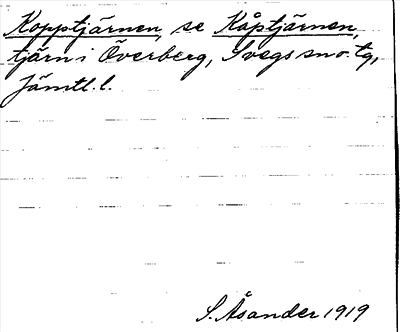 Kopptjärnen, se Kåptjärnen,
tjärn i Överberg, Svegs sn o. tg,
Jämtl. l.
S. Åsander 1919